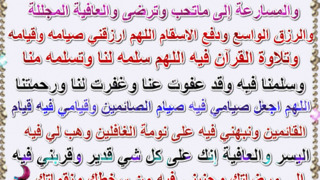 والمسارعة إلى ماتحب وترضى والعافية المجللة
والرزاق الواسع ودفع الاسقام اللهم ارزقني صيامه وقيامه
وتلاوة القرآن فيه اللهم سلمه لنا وتسلمه منا
وسلمنا فيه وقد عفوت عنا وغفرت لنا ورحمتنا
اللهم اجعل صيامي فيه صيام الصائمين وقيامي فيه قيام
القائمين ونبهني فيه على نومة الغافلين وهب لي فيه
اليسر والعافية إنك على كل شي قدير وقربني فيه